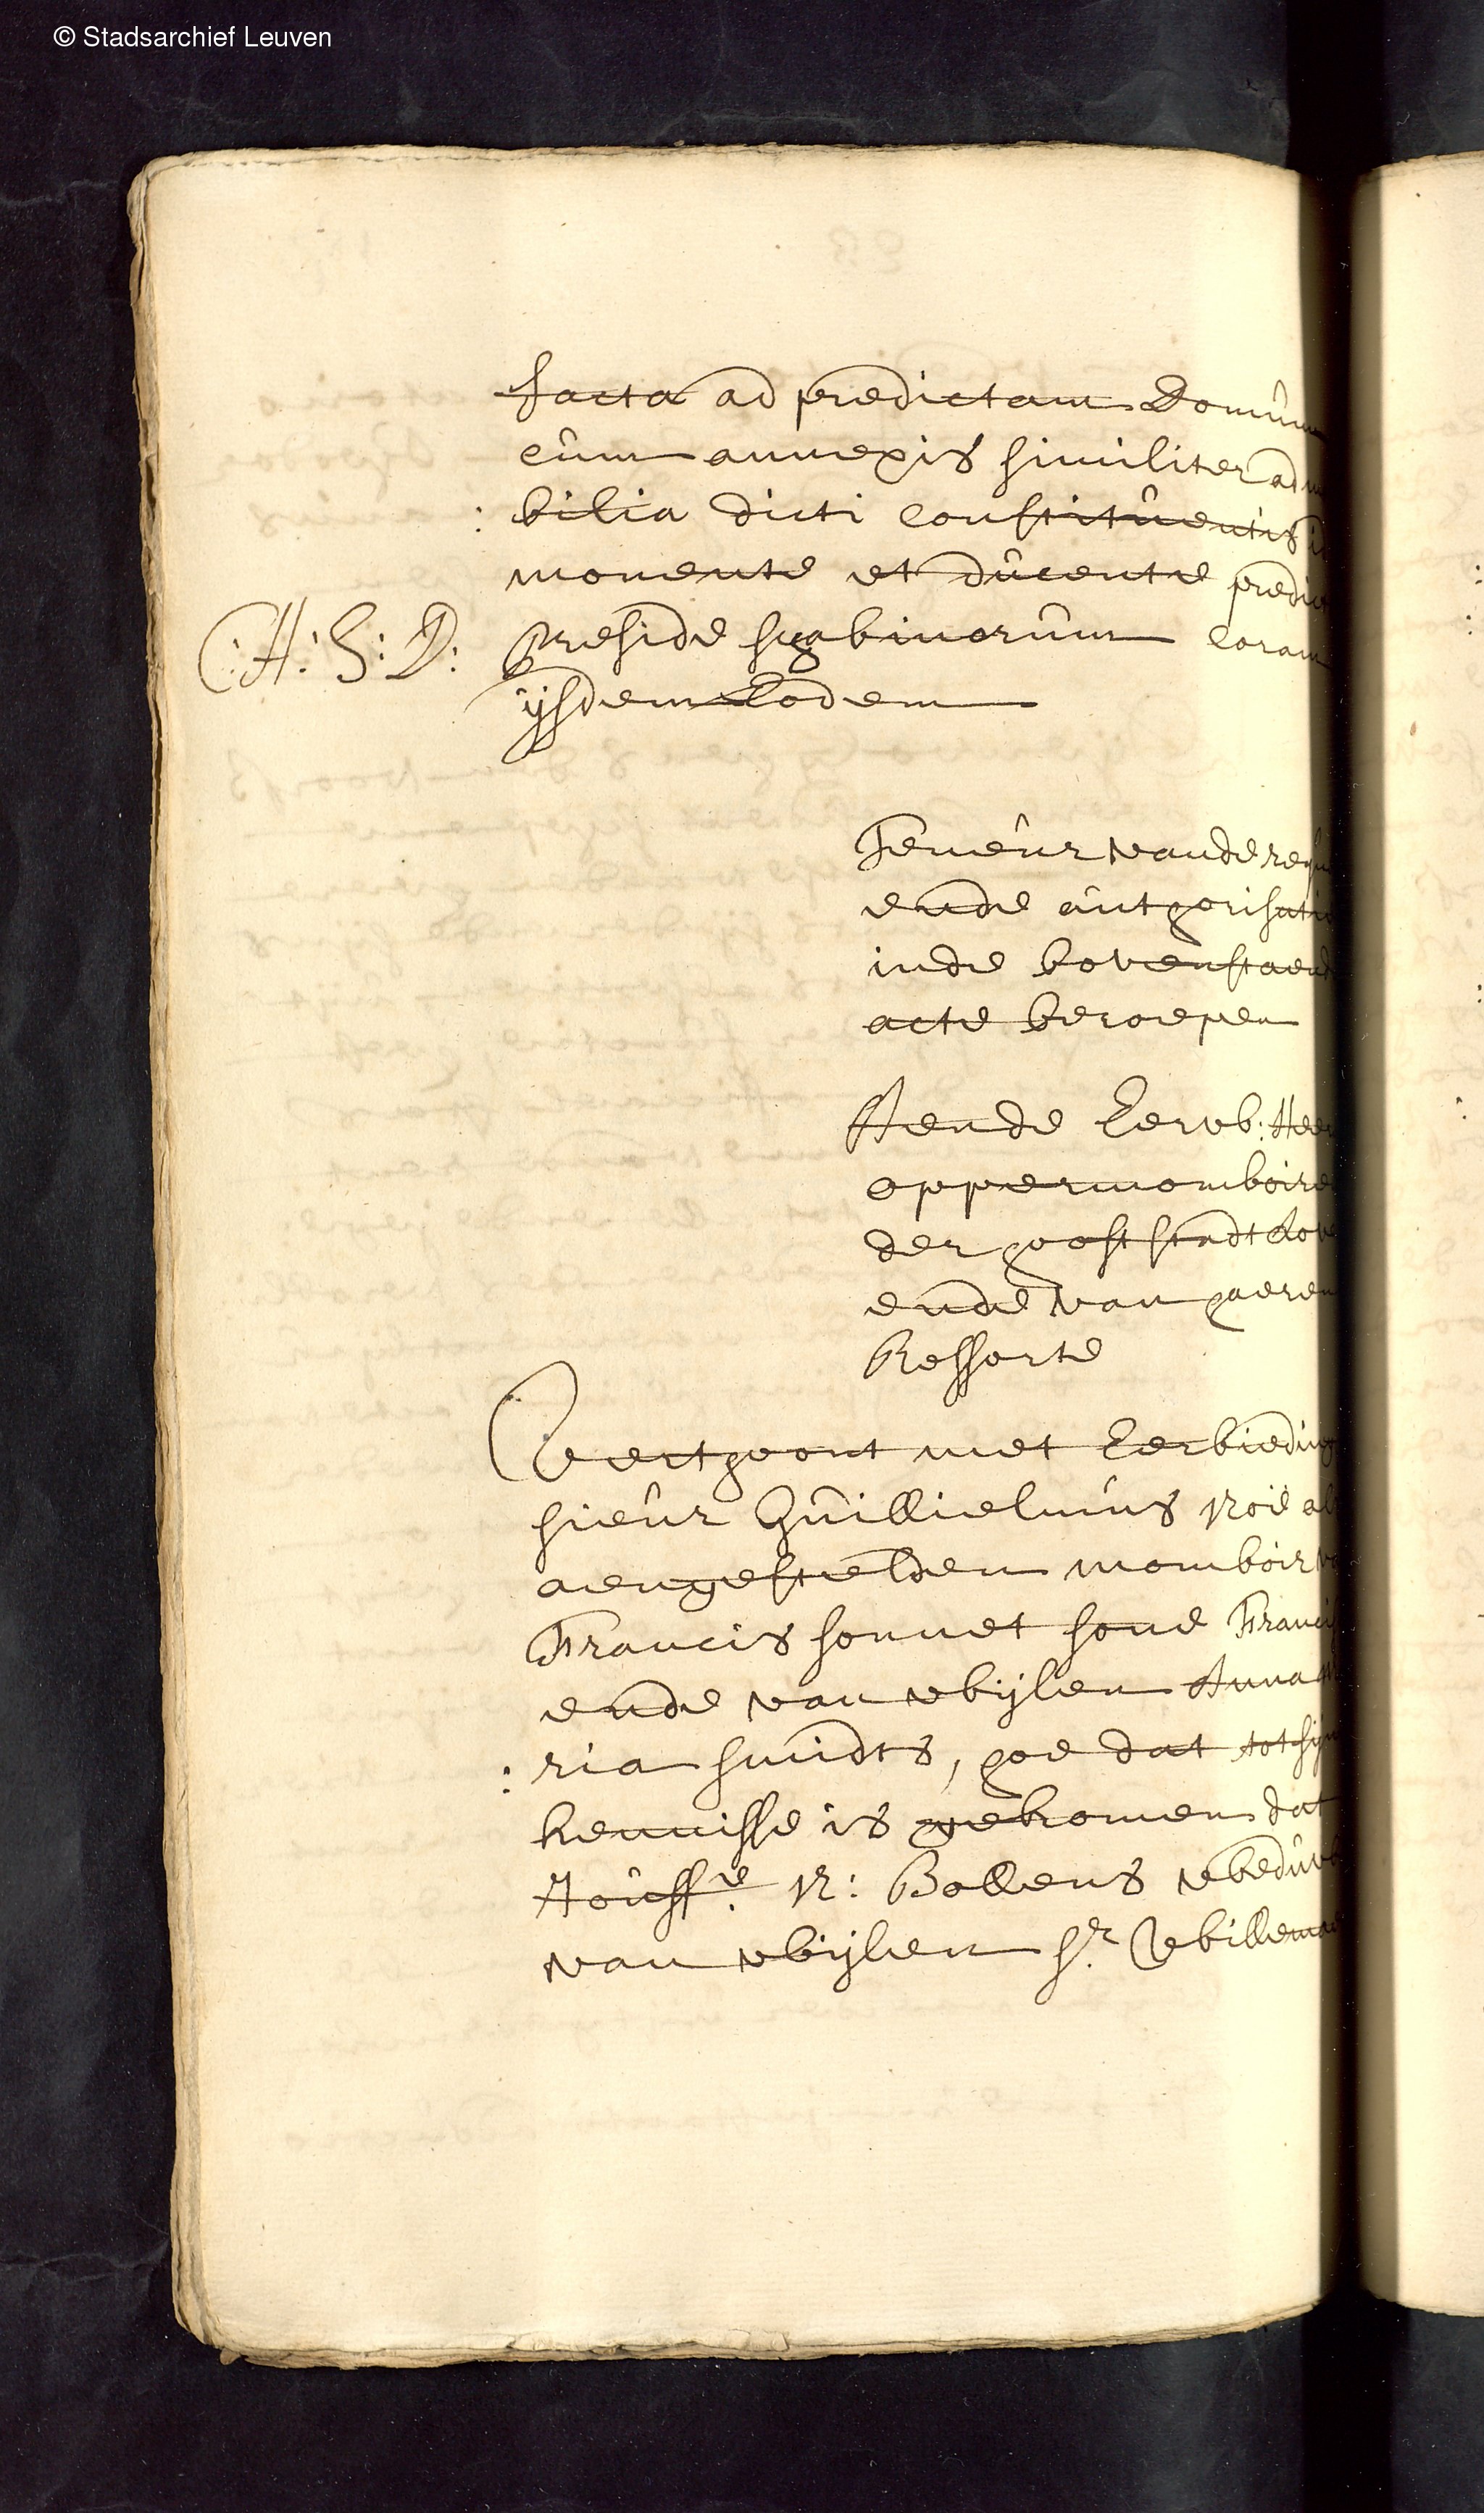 © Stadsarchief Leuven
facta ad predictam Domum
cum annexis similiter ad
: bilia dicti constituentis
monente et ducente
(:H: S: D: preside scabinorum coram
ijsdem Eodem
Teneur vande
ende authorisatie
inde bovenstaende
acte beroepen
Aende Eerw: Heeren
oppermomboiren
der hooftstadt Loven
ende van haeren
Ressorte
Verthoont met Eerbiedinge
sieur Guillielmus Noé als
aengestelden momboir
Francis sonnet sone Francis
ende van wijlen Anna
: ria smidts, hoe dat tot sijn
kennisse is gekomen dat
Jouffe. N: Bollens
van wijlen sr. Willem